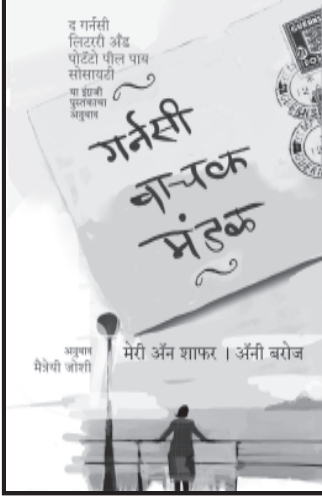 द गर्नसी
लिटररी अँड
पोटॅटो पील पाय
सोसायटी
या इंग्रजी
पुस्तकाचा
अनुवाद
गर्नसी
वाचक
मंडळ
अनुवाद
मैत्रेयी जोशी
मेरी अ‍ॅन शाफर । अ‍ॅनी बरोज